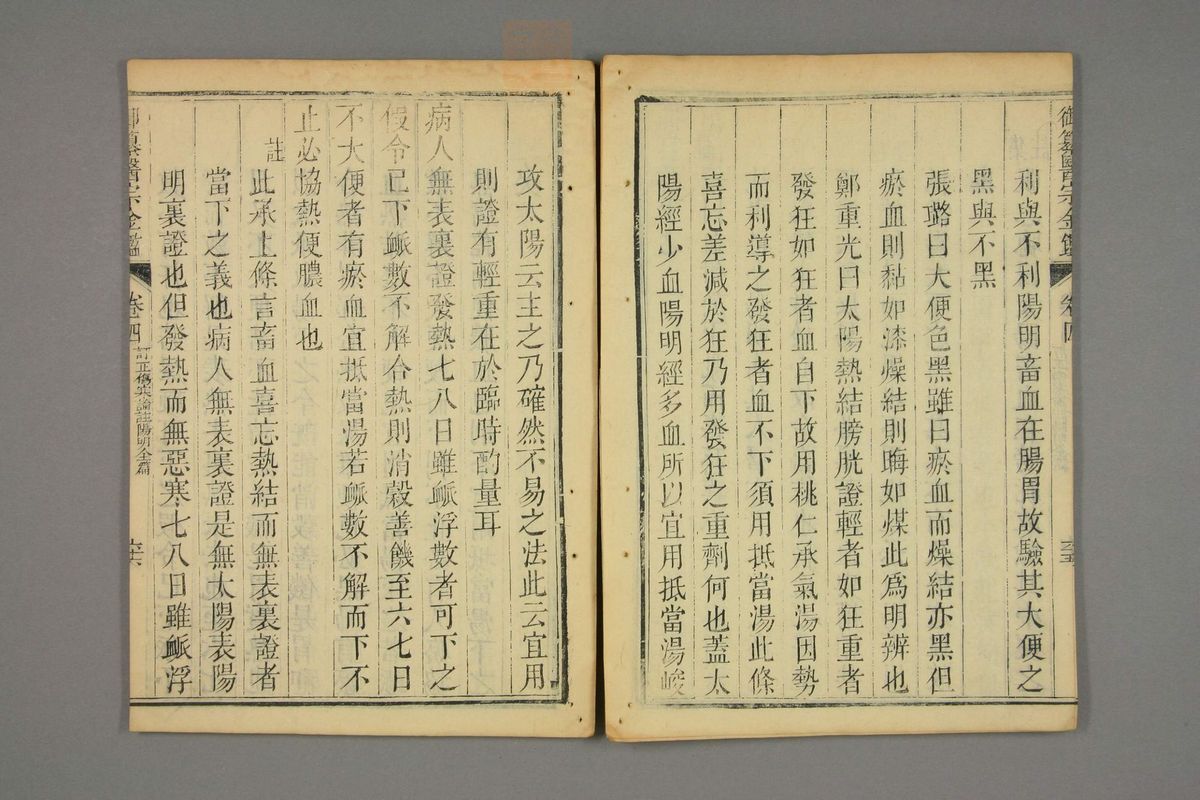 御纂醫宗金鑑 卷四 六十五
利與不利陽明畜血在腸胃故驗其大便之
黑與不黑
張璐曰大便色黑雖曰瘀血而燥結亦黑但
瘀血則黏如漆燥結則晦如煤此爲明辨也
鄭重光曰太陽熱結膀胱證輕者如狂重者
發狂如狂者血自下故用桃仁承氣湯因勢
而利導之發狂者血不下須用抵當湯此條
喜忘差減於狂乃用發狂之重劑何也蓋太
陽經少血陽明經多血所以宜用抵當湯峻
攻太陽云主之乃確然不易之法此云宜用
則證有輕重在於臨時酌量耳
病人無表裏證發熱七八日雖衇浮數者可下之
假令已下衇數不解合熱則消穀善饑至六七日
不大便者有瘀血宜抵當湯若衇數不解而下不
止必協熱便膿血也
註此承上條言畜血喜忘熱結而無表裏證者
當下之義也病人無表裏證是無太陽表陽
明裏證也但發熱而無惡寒七八日雖衇浮
御纂醫宗金鑑 卷四 訂正傷寒論註陽明全篇